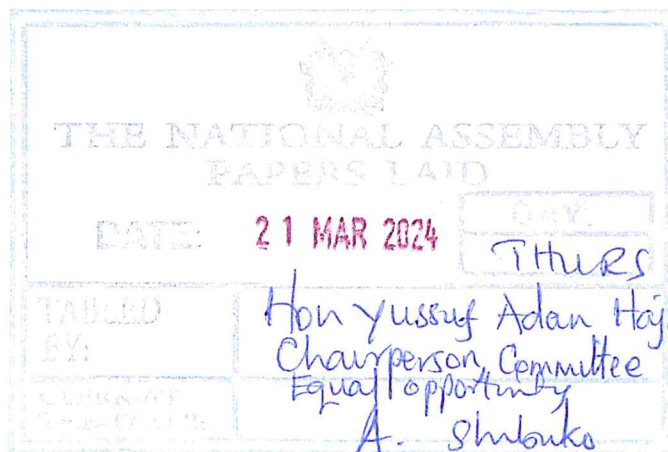 THE NATIONAL ASSEMBLY
PAPERS LAID
DATE: 21 MAR 2024
DAY.
THURS
TABLED
BY:
Hon Yussuf Adan Haj
Chairperson, Committee
Equal opportunity
A. Shibuko